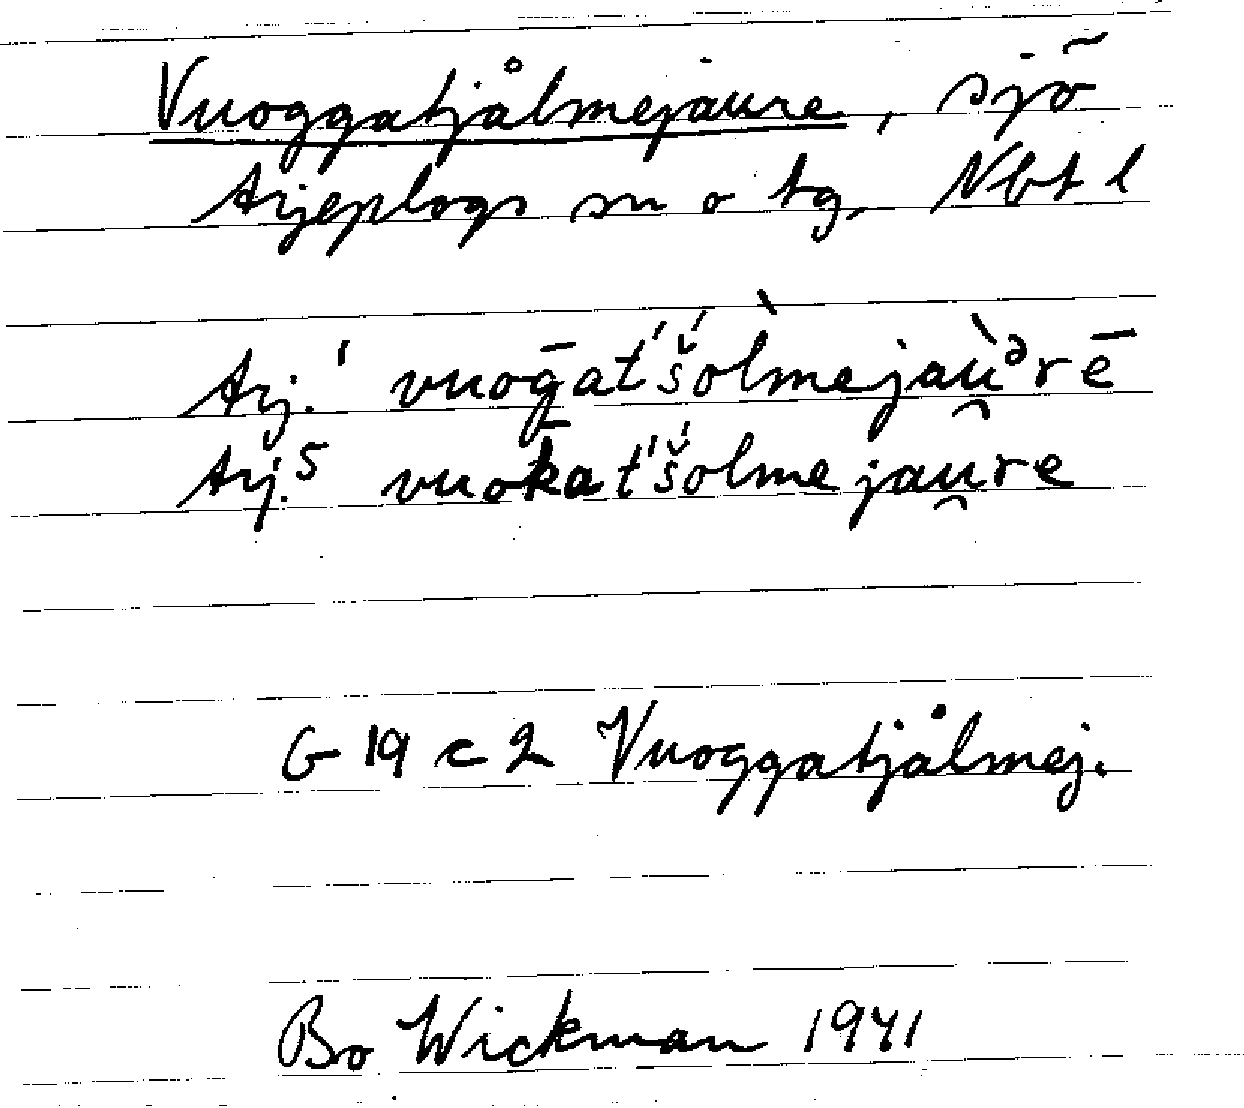 Vuoggatjålmejaure, sjö
Arjeplogs sn o tg, Nbt l
Arj.¹ vuoḡat́š́òlmejaù̯ᵊrē
Arj.⁵ vuok̄at́š́olmejau̯re
G 19 c 2 Vuoggatjålmej.
Bo Wickman 1941